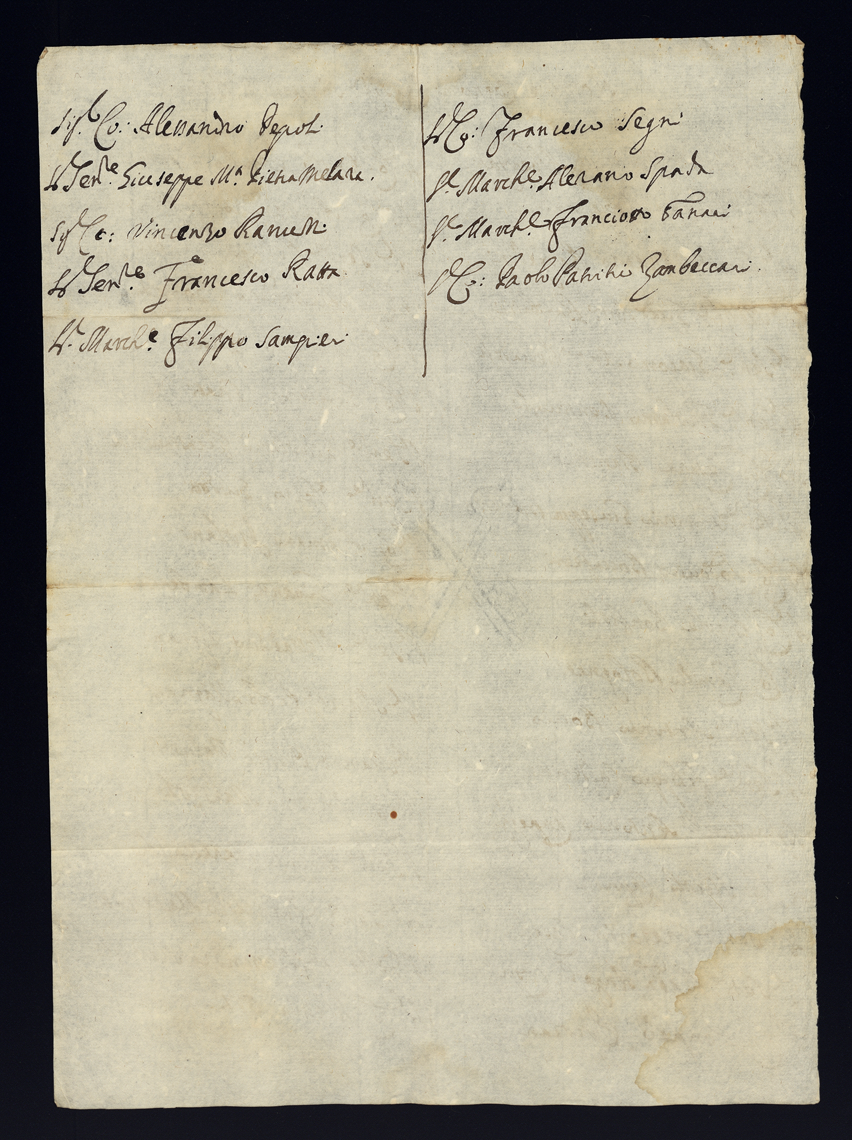 Sig.r Co: Alessandro Pepoli
S.r Sen.re Giuseppe M.a Pietramelara.
Sig.r Co: Vincenzo Ranuzzi
S.r Sen.re Francesco Ratta
S.r March.e Filippo Sampieri
S.r Co: Francesco Segni
S.r March.e Alerano Spada
S.r March.e Franciotto Tanari
S.r Co: Paolo Patritio Zambeccari.